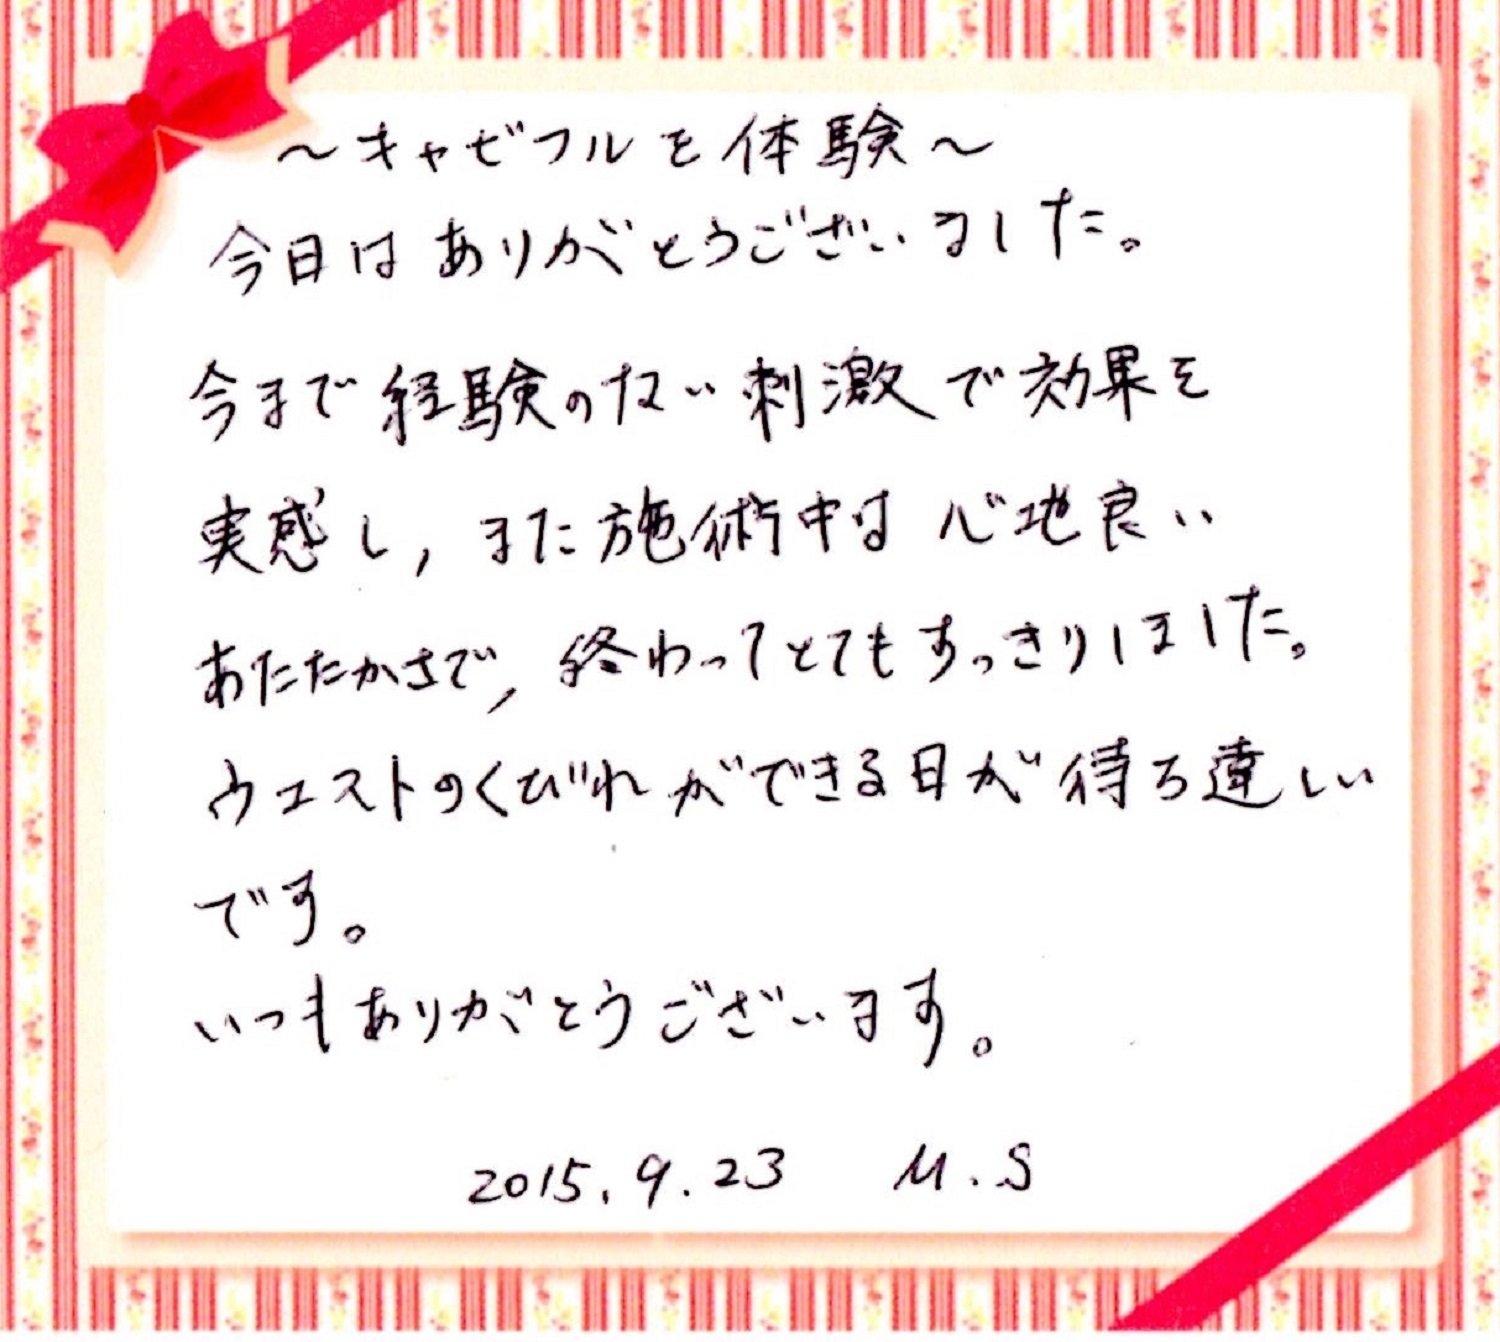 ～キャビフルを体験～
今日はありがとうございました。
今まで経験のない刺激で効果を
実感し,また施術中は心地良い
あたたかさで,終わってとてもすっきりしました。
ウエストのくびれができる日が待ち遠しい
です。
いつもありがとうございます。
2015.9.23 M.S